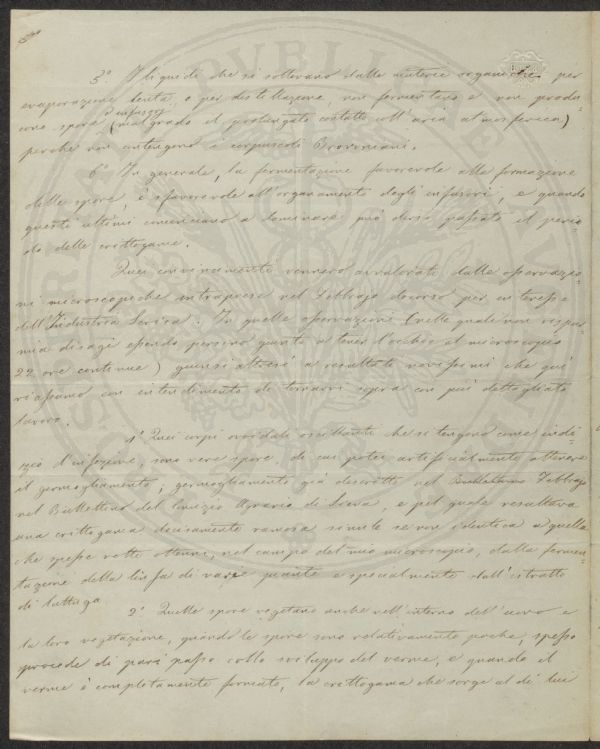 5º. I liquidi che si sollevano dalle materie organiche per
evaporazione lenta, o per distillazione, non fermentano e non produ-
cono spore od infusorj (malgrado il prolungato contatto coll'aria atmosferica)
perchè non contengono i corpuscoli Browniani.
6º In generale, la fermentazione favorevole alla formazione
delle spore, è sfavorevole all'organamento degli infusori, e quando
questi ultimi cominciano a dominare può dirsi passato il perio-
do delle crittogame.
Quei convincimenti vennero avvalorati dalle osservazio-
ni microscopiche intraprese nel Febbrajo decorso per interesse
dell'Industria Serica. In quelle osservazioni (nelle quali non rispar-
miai disagi essendo persino giunto a tener l'occhio al microscopio
22 ore continue) giunsi altresì a resultati nuovissimi che qui
riassumo con intendimento di tornarvi sopra con più dettagliato
lavoro.
1º Quei corpi ovoidali oscillanti che si tengono come indi-
zio d'infezione, sono vere spore di cui potei artificialmente ottenere
il germogliamento; germogliamento già descritto nel
nel Bullettino del Comizio Agrario di Siena, e pel quale resultava
una crittogama decisamente ramosa simile se non identica a quella
che spesse volte ottenni, nel campo del mio microscopio, dalla fermen-
tazione della linfa di varie piante e specialmente dall'estratto
di lattuga
2º Quelle spore vegetano anche nell'interno dell'uovo e
la loro vegetazione, quando le spore sono relativamente poche, spesso
procede di pari passo collo sviluppo del verme, e quando il
verme è completamente formato, la crittogama che sorge al di lui